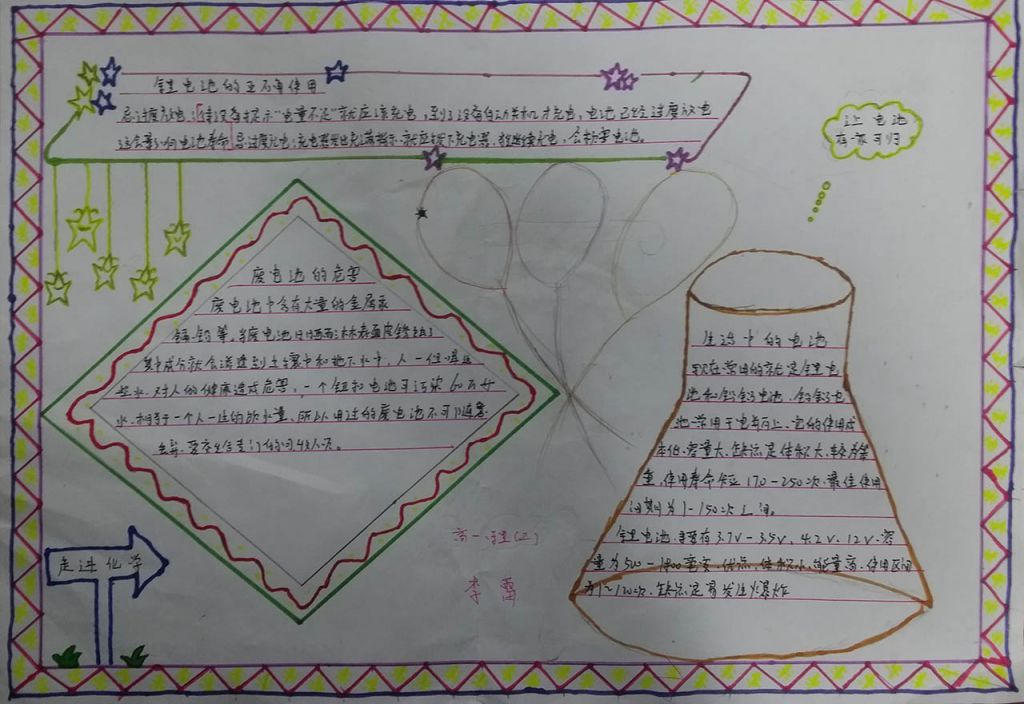 锂电池的正确使用
忌过度放电:建议在提示"电量不足"就应该充电,到了没有自动关机才充电,电池已经过度放电
这会影响电池寿命 忌过度充电:充电器发出充满指示,就应拔下充电器,继续充电,会损害电池。
让电池
有家可归
废电池的危害
废电池中含有大量的金属汞
镉、铅等,当废电池日晒雨淋表面皮锈蚀了
其中成分就会渗透到土壤中和地下水中,人一但喝
水,对人的健康造成危害,一个钮扣电池可污染60万升
水,相当于一个人一生的饮水量,所以用过的废电池不可随意
丢弃,
生活中的电池
现在常用的就是锂电
池和铅電池,
池常用于电车上,它的使用成
本低,容量大,缺点是体积大,较为笨
重,使用寿命短 170-250次,最佳使用
周期为1-150次之间。
锂电池,主要有3.7V-3.5V,4.2V,12V,容
量为500-1800毫安,优点,体积小,能量高,使用区间
为1~120次,缺点是易发生爆炸
走进化学
高一 (2)
李